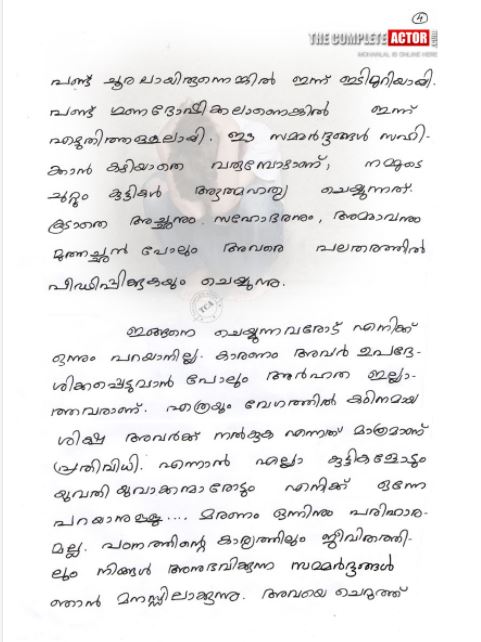 4
THE COMPLETE ACTOR
MOHANLAL IS ONLINE HERE
പണ്ട് ചൂരലായിരുന്നെങ്കിൽ ഇന്ന് ഇടിമുറിയായി.
പണ്ട് ഗുണദോഷിക്കലാണെങ്കിൽ ഇന്ന്
എഴുതിത്തള്ളലായി. ഈ സമ്മർദ്ദങ്ങൾ സഹി-
ക്കാൻ കഴിയാതെ വരുമ്പോഴാണ്, നമ്മുടെ
ചുറ്റും കുട്ടികൾ ആത്മഹത്യ ചെയ്യുന്നത്.
കൂടാതെ അച്ഛനും. സഹോദരനും, അമ്മാവനും
മുത്തച്ഛൻ പോലും അവരെ പലതരത്തിൽ
പീഡിപ്പിക്കുകയും ചെയ്യുന്നു.
TCA
ഇങ്ങനെ ചെയ്യുന്നവരോട് എനിക്ക്
ഒന്നും പറയാനില്ല. കാരണം അവർ ഉപദേ-
ശിക്കപ്പെടുവാൻ പോലും അർഹത ഇല്ലാ-
ത്തവരാണ്. എത്രയും വേഗത്തിൽ കഠിനമായ
ശിക്ഷ അവർക്ക് നൽകുക എന്നത് മാത്രമാണ്
പ്രതിവിധി. എന്നാൻ എല്ലാ കുട്ടികളോടും
യുവതി യുവാക്കന്മാരോടും എനിക്ക് ഒന്നേ
പറയാനുള്ളൂ.... മരണം ഒന്നിനും പരിഹാര-
മല്ല. പഠനത്തിന്റെ കാര്യത്തിലും ജീവിതത്തി-
ലും നിങ്ങൾ അനുഭവിക്കുന്ന സമ്മർദ്ദങ്ങൾ
ഞാൻ മനസ്സിലാക്കുന്നു. അവയെ ചെറുത്ത്